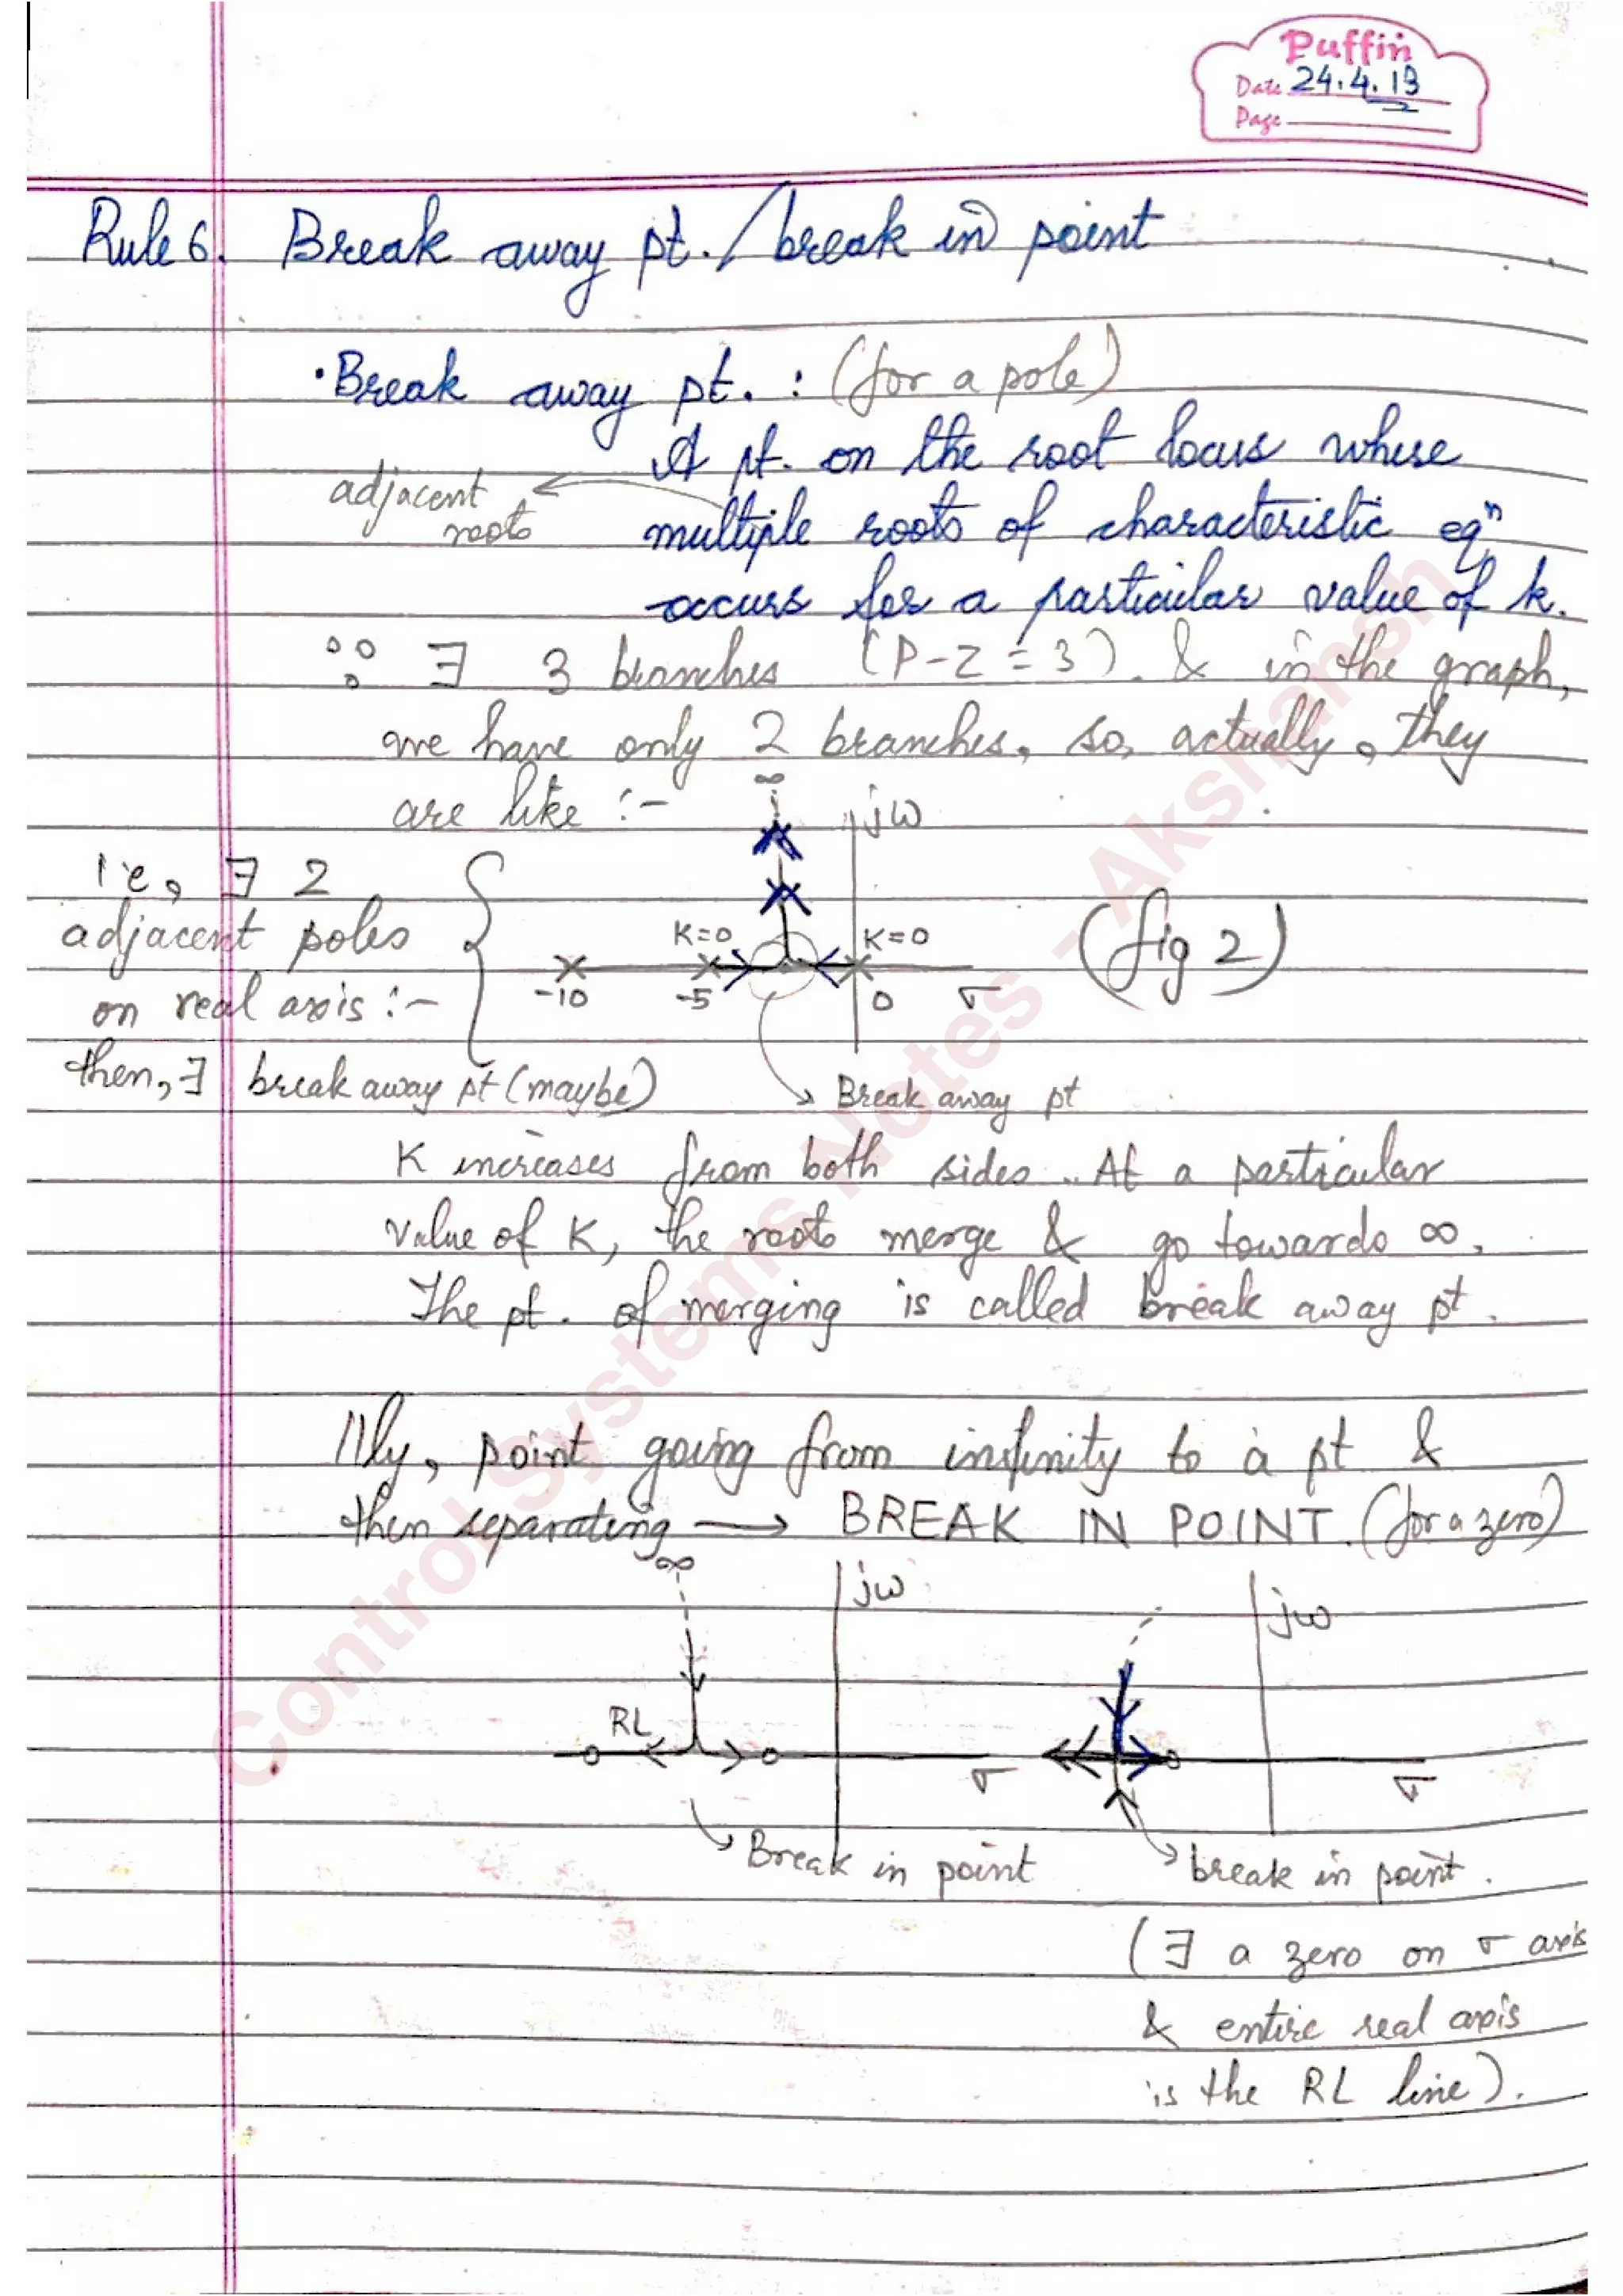 Puffin
Date 24.4.13
Page
Rule 6. Break away pt. / break in point
• Break away pt. : (for a pole)
A pt. on the root locus whose
adjacent roots
multiple roots of characteristic eqⁿ
occurs for a particular value of k.
∵ ∃ 3 branches (P-Z=3). & in the graph,
we have only 2 branches, so, actually, they
are like :-
∞
jω
i.e, ∃ 2
adjacent poles
on real axis :-
then, ∃ break away pt (maybe)
K=0
K=0
-10
-5
0
σ
(fig 2)
Break away pt
K increases from both sides. At a particular
value of K, the roots merge & go towards ∞.
The pt. of merging is called break away pt.
llly, point going from infinity to a pt &
then separating → BREAK IN POINT. (for a zero)
∞
jω
jω
RL
σ
σ
Break in point
break in point.
(∃ a zero on σ axis
& entire real axis
is the RL line).
Control Systems Notes - Akshansh